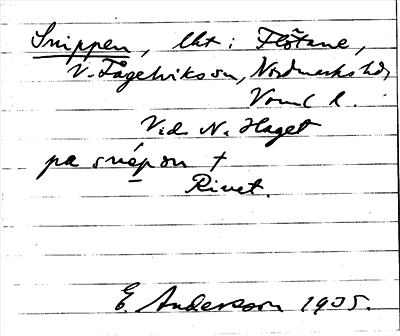 Snippen, lht i Flötane,
V. Fågelvikssn, Nordmarks hd,
Värml l.
Vid N. Haget
pa snépən +
Rivet.
E. Andersson 1935.